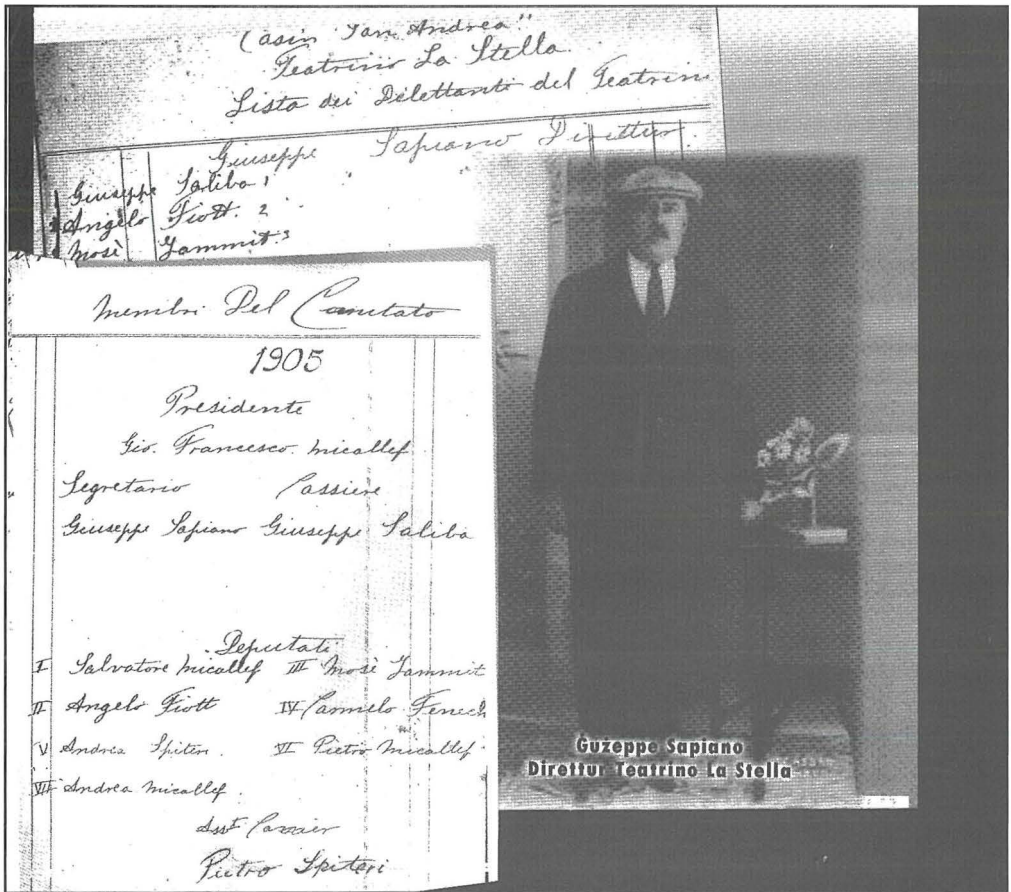 Casin "San Andrea"
Teatrino La Stella
Lista dei Dilettanti del Teatrin
Giuseppe Sapiano Direttur
Giuseppe Saliba 1
Angelo Fiott. 2
Mosè Zammit 3
Membri Del Comitato
1905
Presidente
Gio. Francesco Micallef
Segretario Cassiere
Giuseppe Sapiano Giuseppe Saliba
Deputati
I Salvatore Micallef III Mosè Zammit
II Angelo Fiott IV Carmelo Fenech
V Andrea Spiteri VI Pietro Micallef
VII Andrea Micallef
Asst Cassier
Pietro Spiteri
Guzeppe Sapiano
Direttur Teatrino La Stella